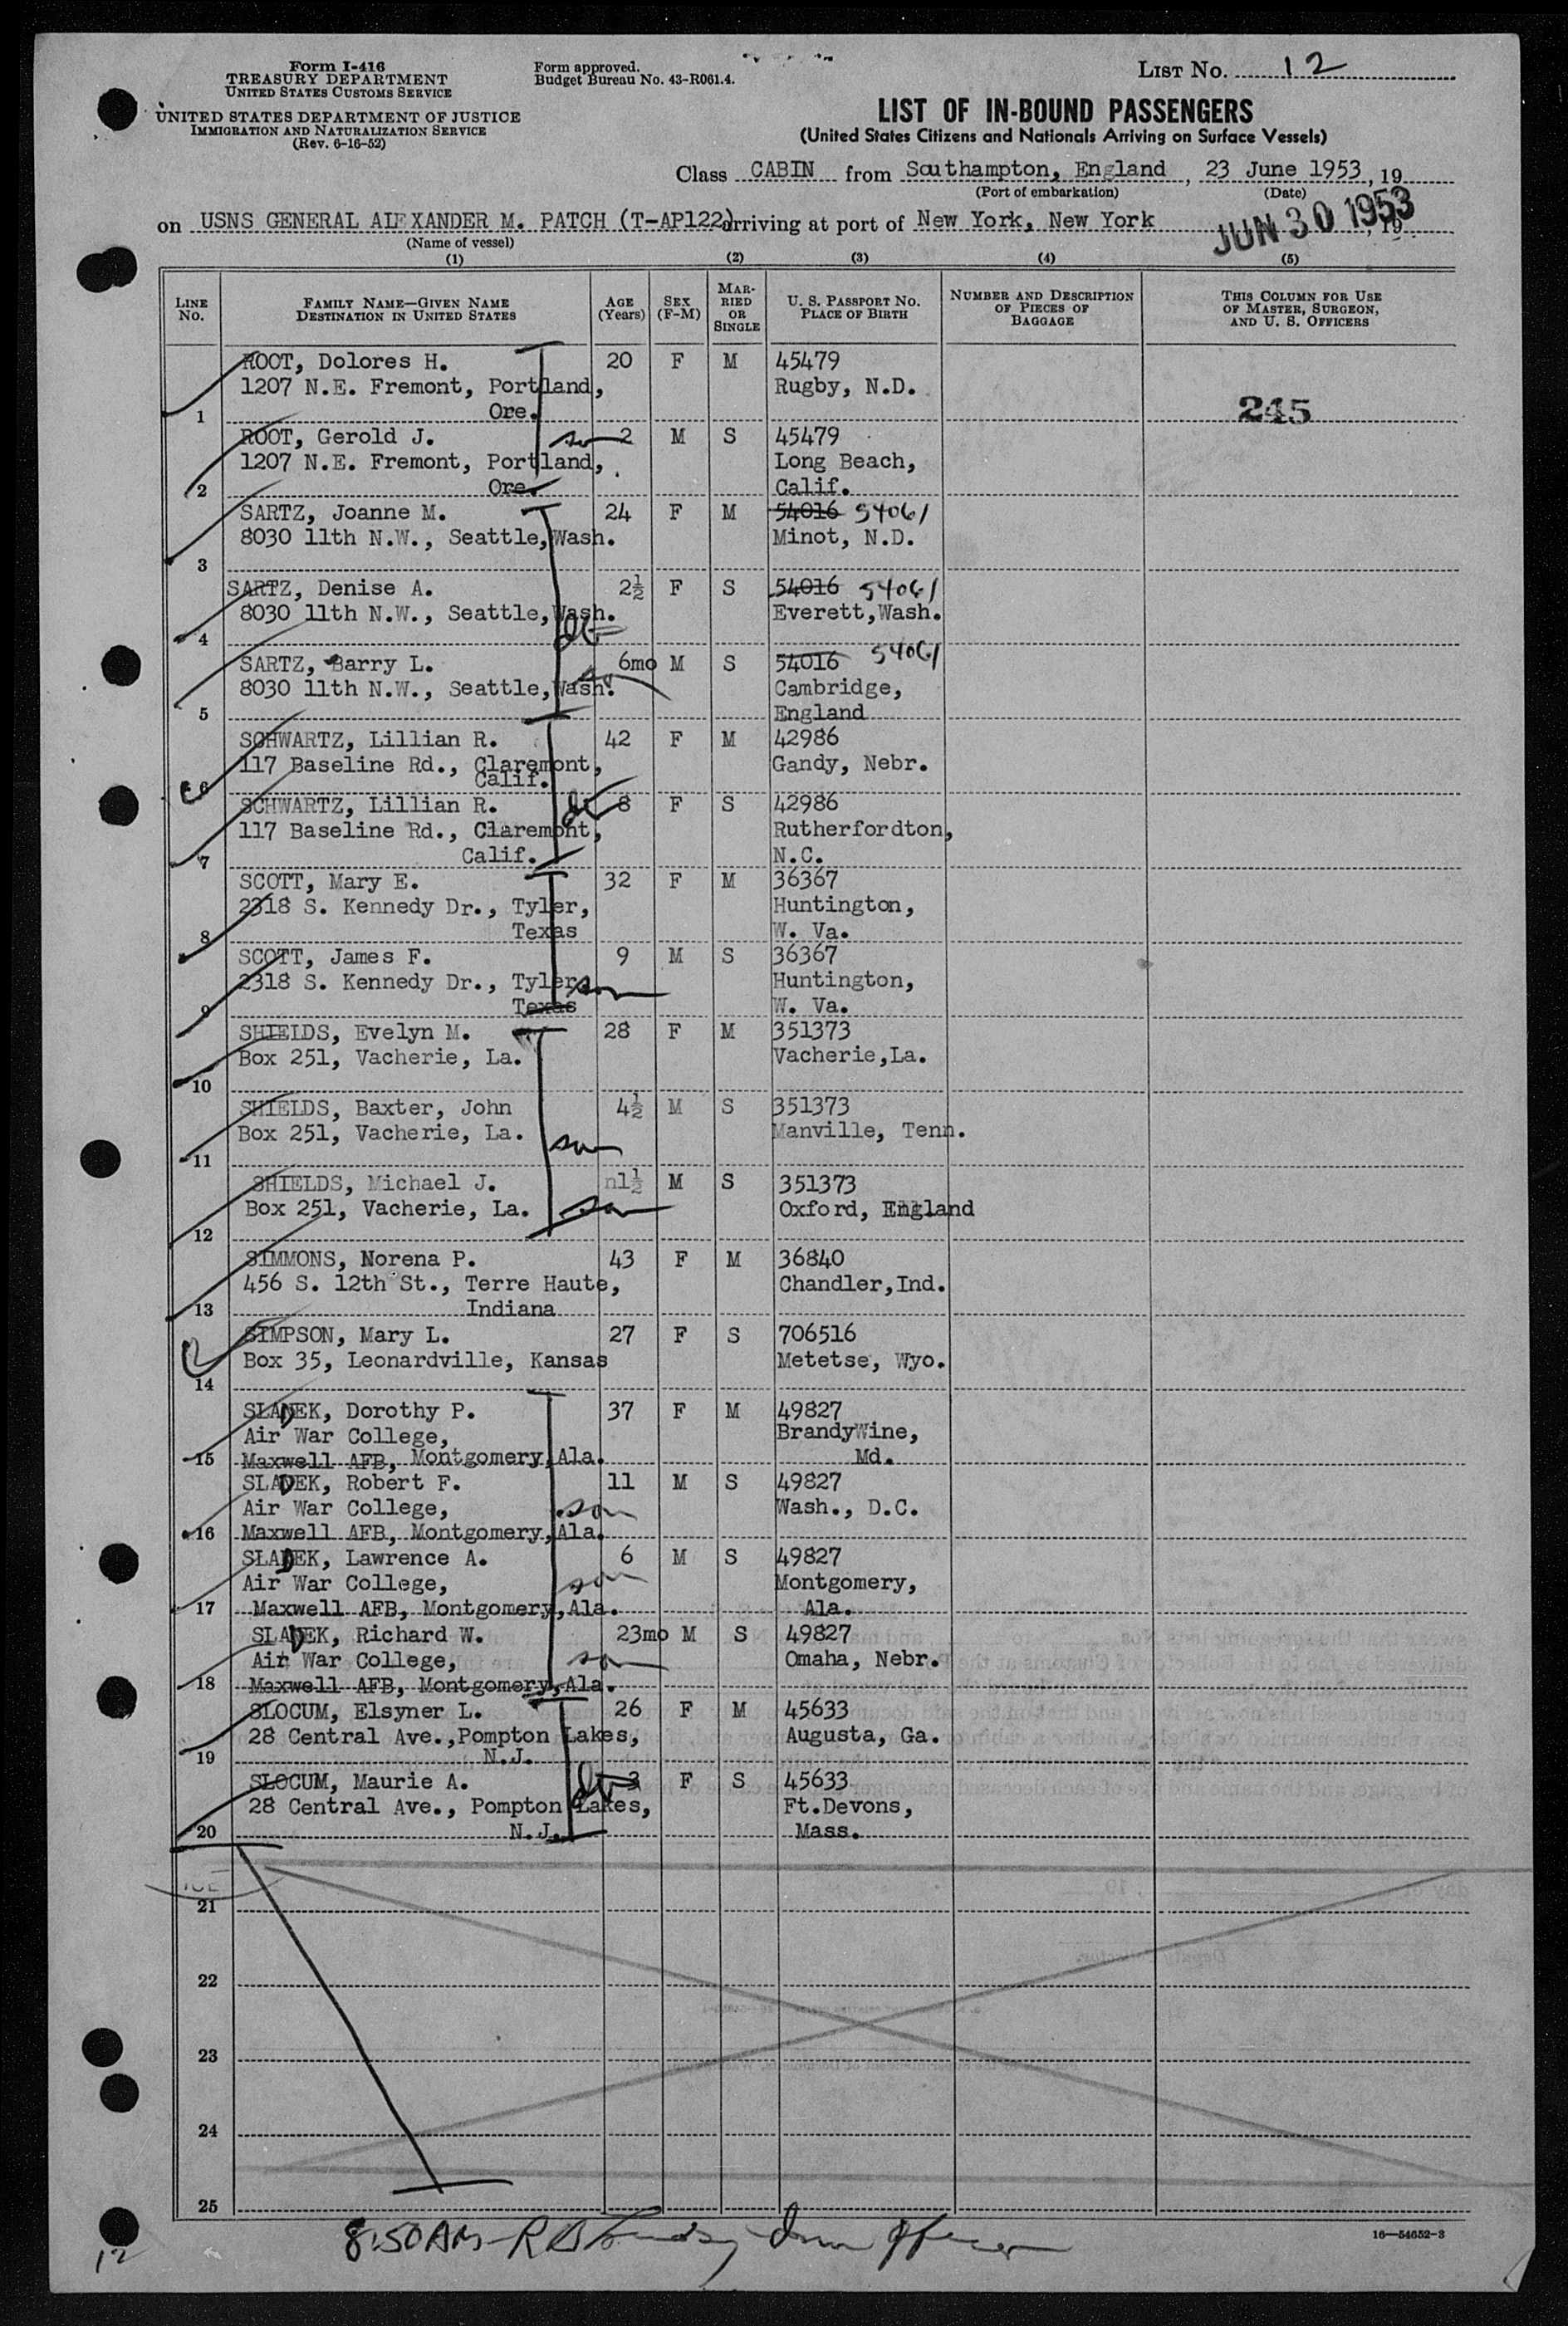 Form I-416
TREASURY DEPARTMENT
UNITED STATES CUSTOMS SERVICE
UNITED STATES DEPARTMENT OF JUSTICE
IMMIGRATION AND NATURALIZATION SERVICE
(Rev. 6-16-52)
Form approved.
Budget Bureau No. 43-R061.4.
LIST No. 12
LIST OF IN-BOUND PASSENGERS
(United States Citizens and Nationals Arriving on Surface Vessels)
Class CABIN from Southampton, England, 23 June 1953, 19
(Port of embarkation) (Date)
on USNS GENERAL ALEXANDER M. PATCH (T-AP122) arriving at port of New York, New York, 19
JUN 30 1953
(Name of vessel)
(1) (2) (3) (4) (5)
LINE No. FAMILY NAME—GIVEN NAME DESTINATION IN UNITED STATES AGE (Years) SEX (F-M) MARRIED OR SINGLE U. S. PASSPORT No. PLACE OF BIRTH NUMBER AND DESCRIPTION OF PIECES OF BAGGAGE THIS COLUMN FOR USE OF MASTER, SURGEON, AND U. S. OFFICERS
ROOT, Dolores H. 20 F M 45479
1207 N.E. Fremont, Portland, Rugby, N.D.
1 Ore. 245
ROOT, Gerold J. son 2 M S 45479
1207 N.E. Fremont, Portland, Long Beach,
2 Ore. Calif.
SARTZ, Joanne M. 24 F M 54016 54061
8030 11th N.W., Seattle,Wash. Minot, N.D.
3
SARTZ, Denise A. 2½ F S 54016 54061
8030 11th N.W., Seattle,Wash. Everett,Wash.
4
SARTZ, Barry L. 6mo M S 54016 54061
8030 11th N.W., Seattle,Wash. Cambridge,
5 England
SCHWARTZ, Lillian R. 42 F M 42986
117 Baseline Rd., Claremont, Gandy, Nebr.
6 Calif.
SCHWARTZ, Lillian R. 8 F S 42986
117 Baseline Rd., Claremont, Rutherfordton,
7 Calif. N.C.
SCOTT, Mary E. 32 F M 36367
2318 S. Kennedy Dr., Tyler, Huntington,
8 Texas W. Va.
SCOTT, James F. 9 M S 36367
2318 S. Kennedy Dr., Tyler, son Huntington,
9 Texas W. Va.
SHIELDS, Evelyn M. 28 F M 351373
Box 251, Vacherie, La. Vacherie,La.
10
SHIELDS, Baxter, John 4½ M S 351373
Box 251, Vacherie, La. son Manville, Tenn.
11
SHIELDS, Michael J. n1½ M S 351373
Box 251, Vacherie, La. son Oxford, England
12
SIMMONS, Norena P. 43 F M 36840
456 S. 12th St., Terre Haute, Chandler,Ind.
13 Indiana
SIMPSON, Mary L. 27 F S 706516
Box 35, Leonardville, Kansas Metetse, Wyo.
14
SLADEK, Dorothy P. 37 F M 49827
Air War College, BrandyWine,
15 Maxwell AFB, Montgomery,Ala. Md.
SLADEK, Robert F. 11 M S 49827
Air War College, son Wash., D.C.
16 Maxwell AFB, Montgomery,Ala.
SLADEK, Lawrence A. 6 M S 49827
Air War College, son Montgomery,
17 Maxwell AFB, Montgomery,Ala. Ala.
SLADEK, Richard W. 23mo M S 49827
Air War College, son Omaha, Nebr.
18 Maxwell AFB, Montgomery,Ala.
SLOCUM, Elsyner L. 26 F M 45633
28 Central Ave.,Pompton Lakes, Augusta, Ga.
19 N.J.
SLOCUM, Maurie A. 3 F S 45633
28 Central Ave., Pompton Lakes, Ft.Devons,
20 N.J. Mass.
21
22
23
24
25
8:50AM
16—54652-3
12